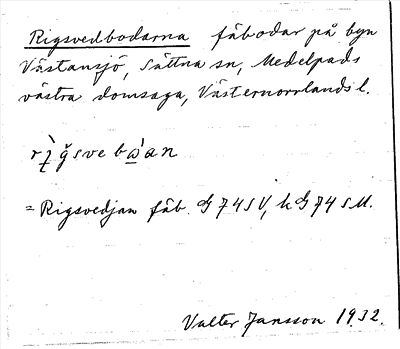 Rigsvedbodarna fäbodar på byn
Västansjö, Sättna sn, Medelpads
västra domsaga, Västernorrlands l.
= Rigsvedjan fäb. G 74 SV, k G 74 SM.
Valter Jansson 1932.